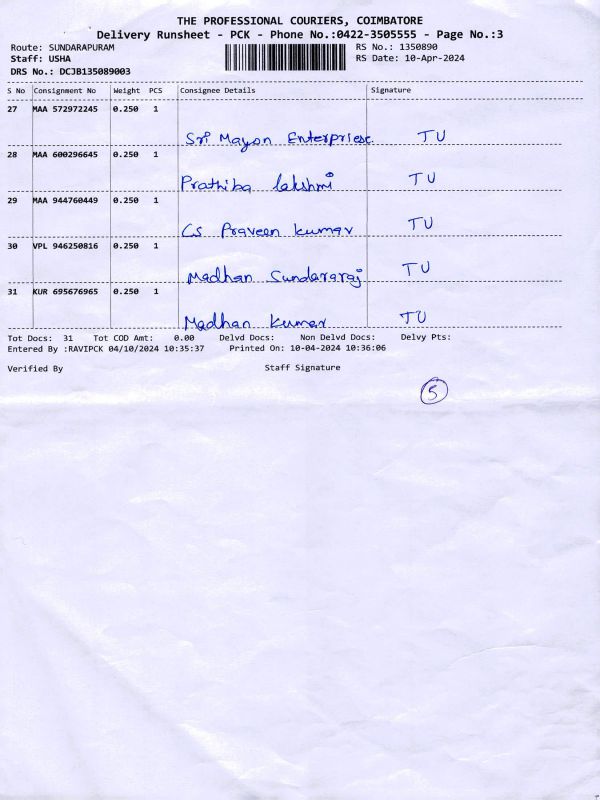 THE PROFESSIONAL COURIERS, COIMBATORE
Delivery Runsheet - PCK - Phone No.:0422-3505555 - Page No.:3
Route: SUNDARAPURAM RS No.: 1350890
Staff: USHA RS Date: 10-Apr-2024
DRS No.: DCJB135089003
S No Consignment No Weight PCS Consignee Details Signature
27 MAA 572972245 0.250 1
Sri Mayon Enterpriese TU
28 MAA 600296645 0.250 1
Prathiba lakshmi TU
29 MAA 944760449 0.250 1
CS Praveen kumar TU
30 VPL 946250816 0.250 1
Madhan Sundararaj TU
31 KUR 695676965 0.250 1
Madhan kumar TU
Tot Docs: 31 Tot COD Amt: 0.00 Delvd Docs: Non Delvd Docs: Delvy Pts:
Entered By :RAVIPCK 04/10/2024 10:35:37 Printed On: 10-04-2024 10:36:06
Verified By Staff Signature
5